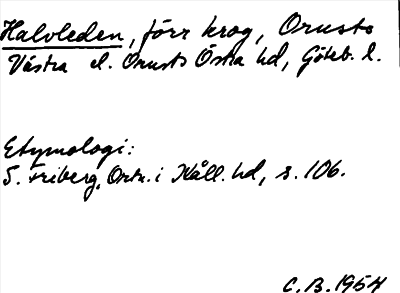 Halvleden, förr krog, Orusts
Västra el. Orusts Östra hd, Göteb. l.
Etymologi:
S. Friberg, Ortn. i Kåll. hd, s. 106.
C.B. 1954